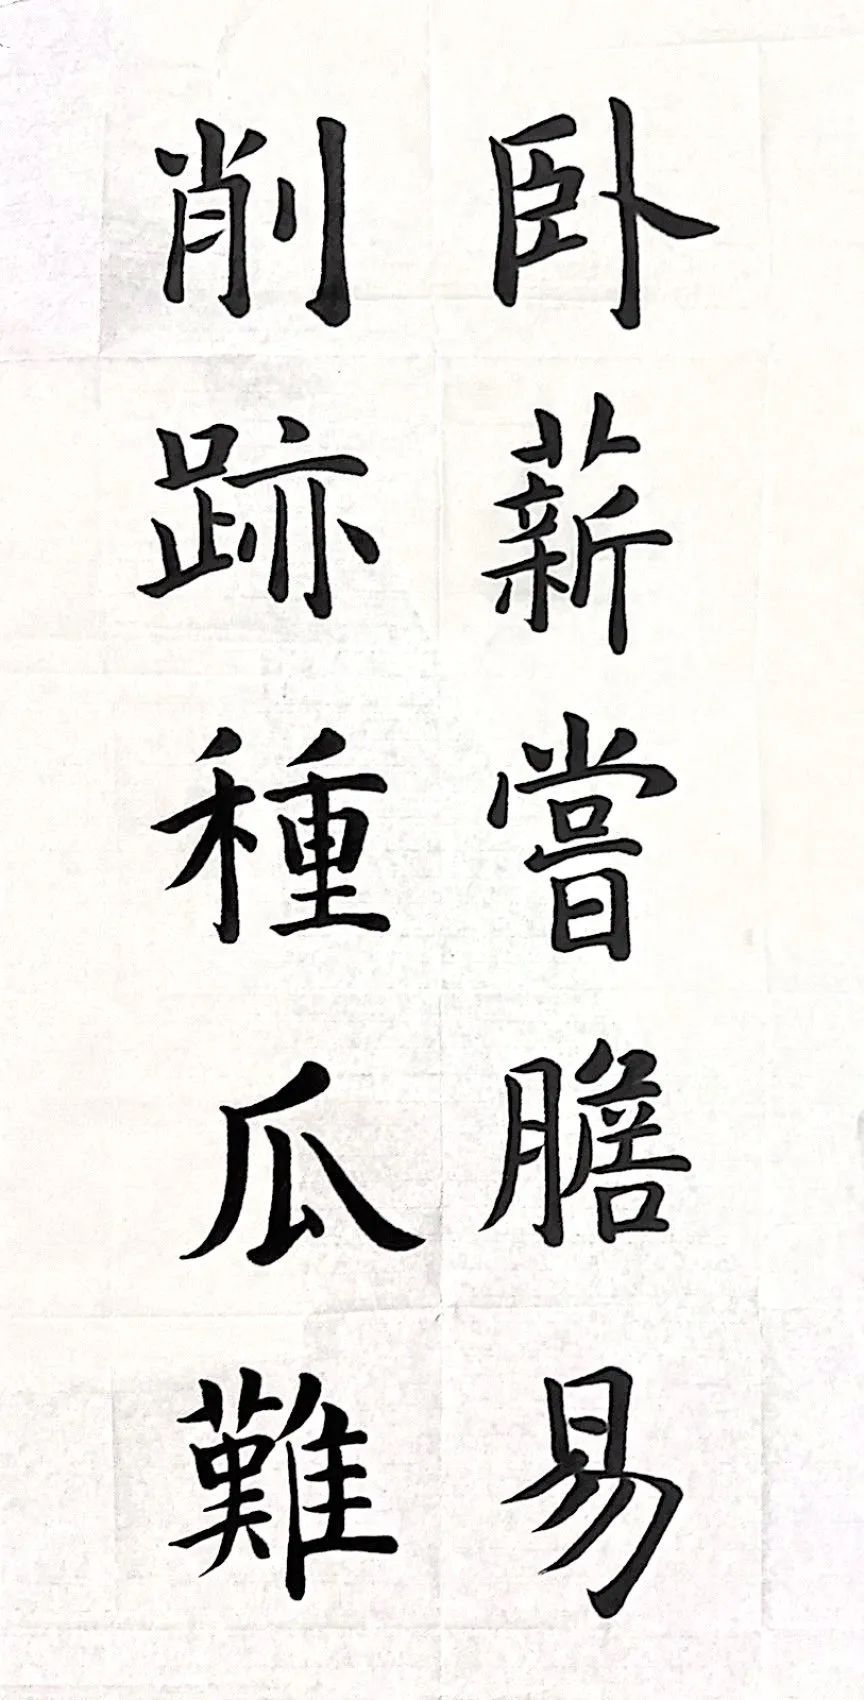 卧薪嘗膽易
削跡種瓜難